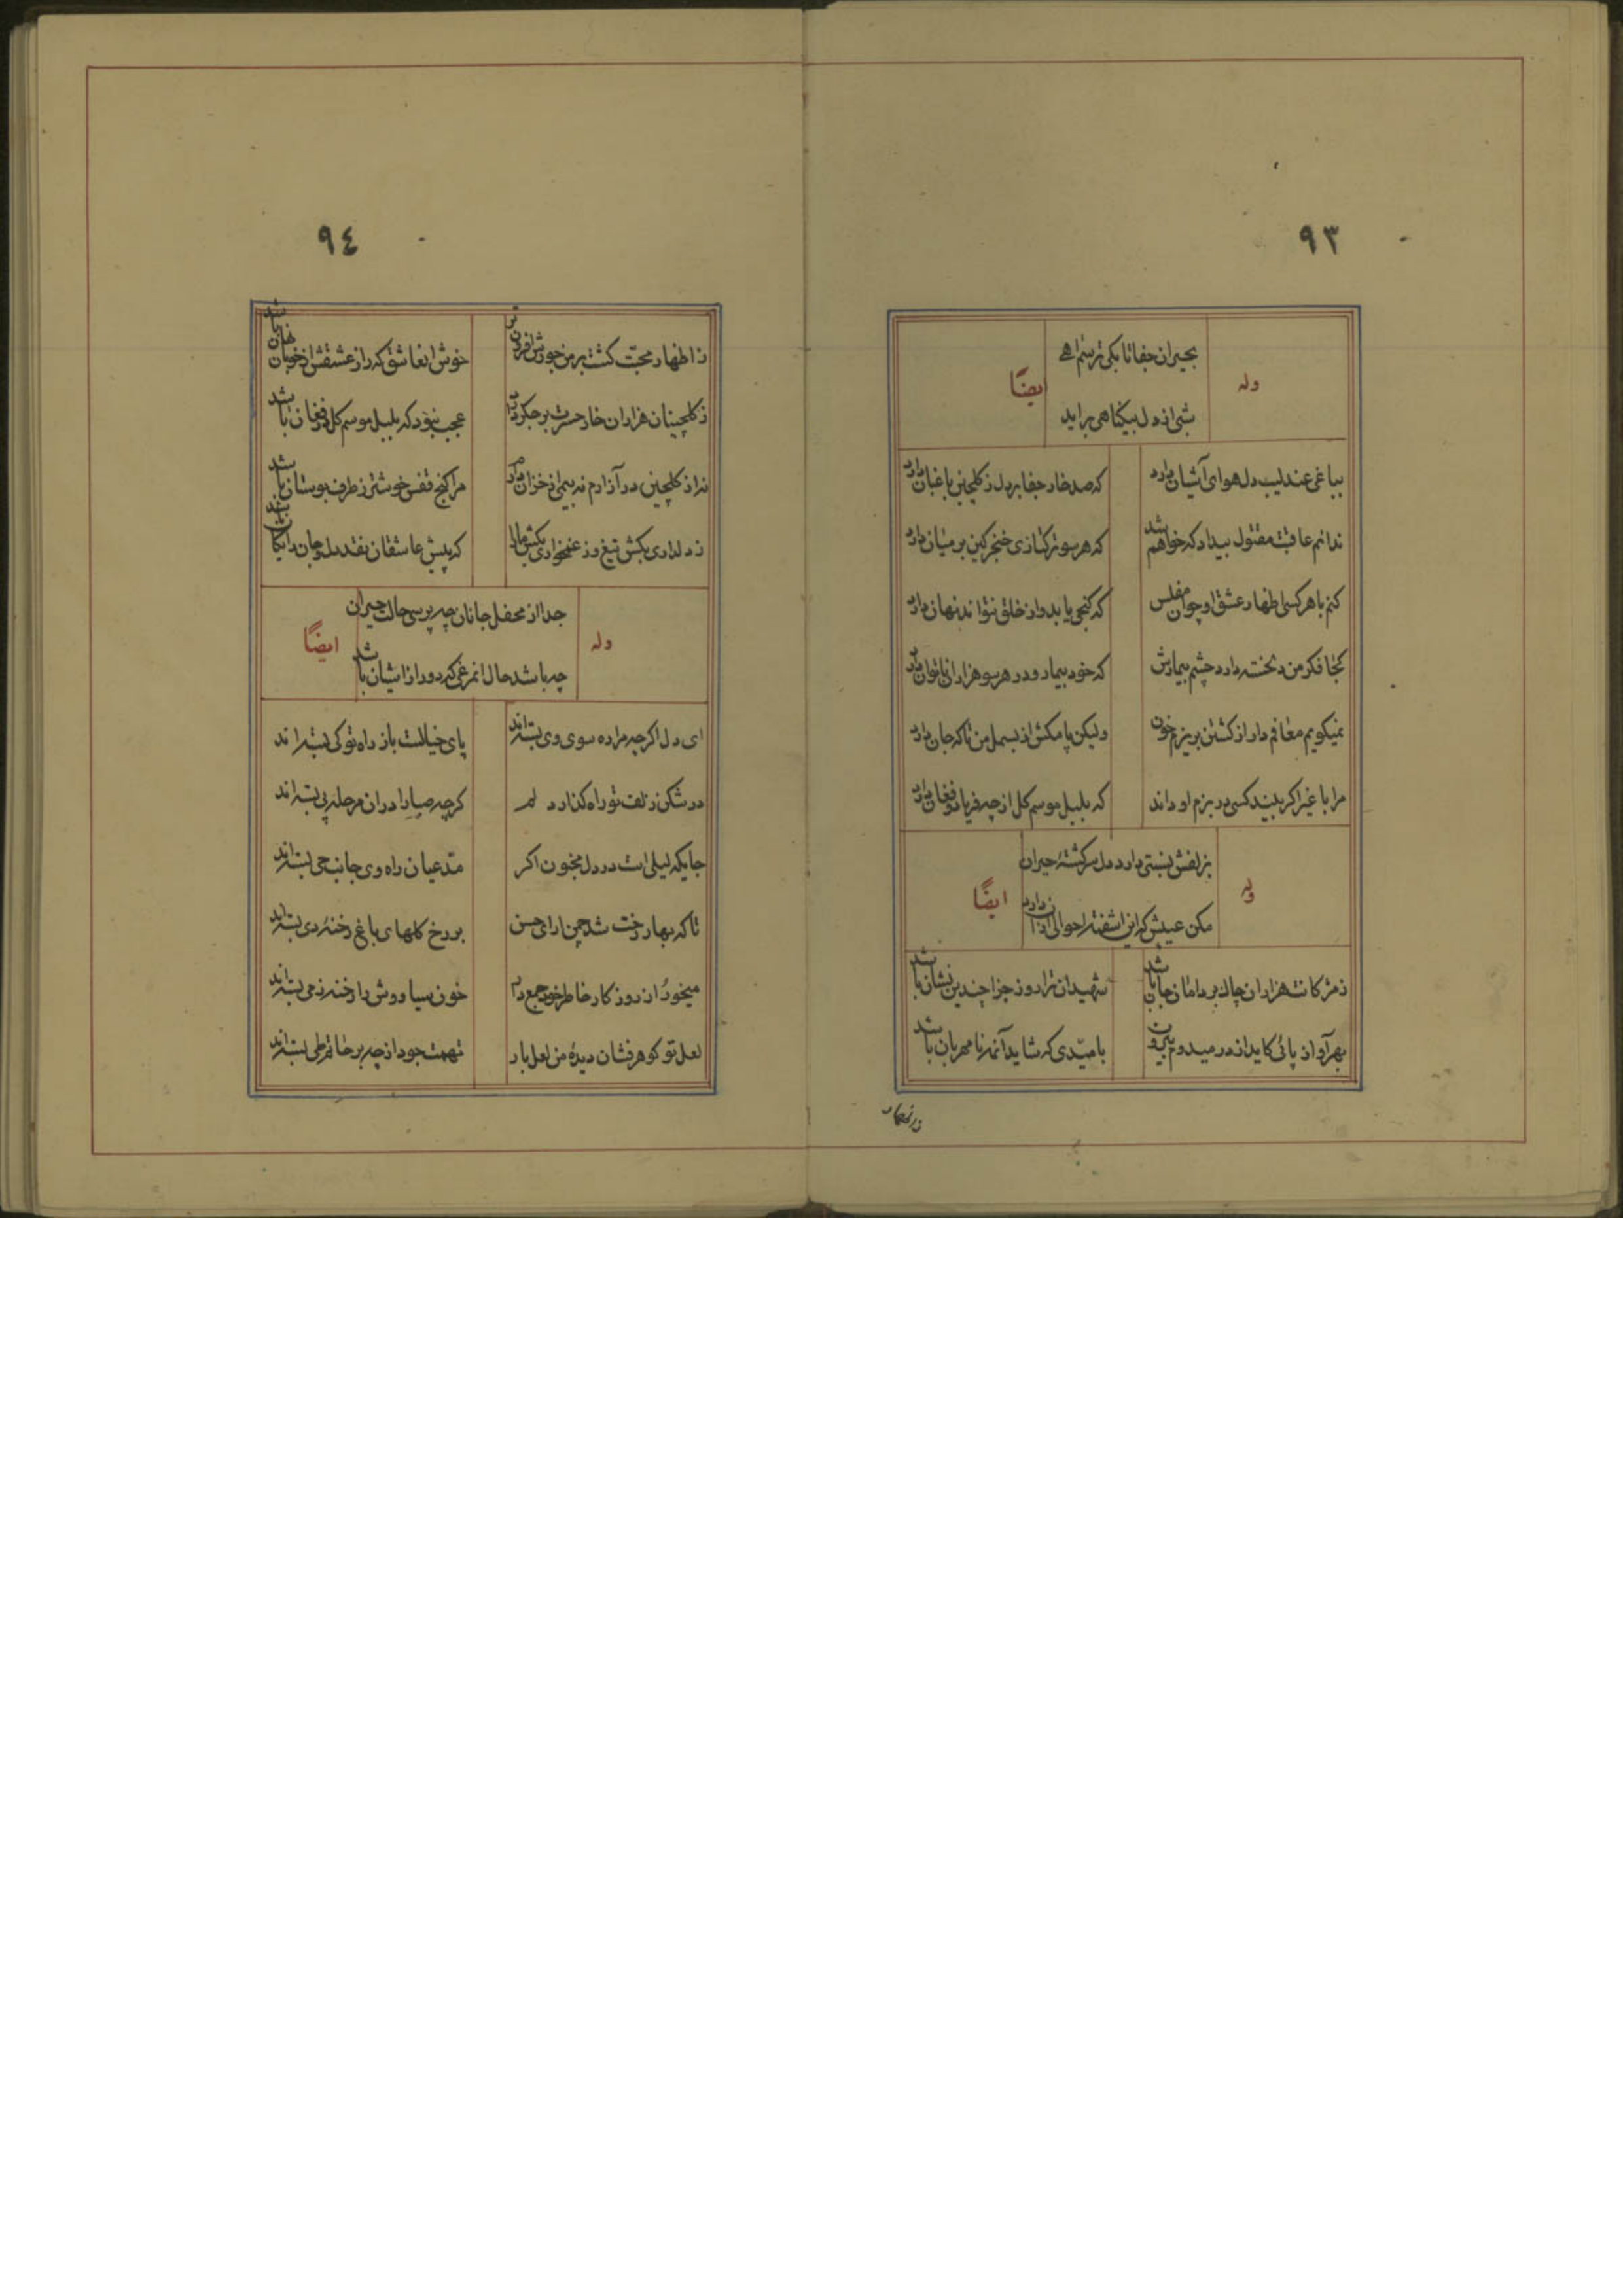 ٩٣
بحیران جفا تا بکی ترسم اهی
وله ایضًا
شبی از دل بیکناهی براید
بباغی عندلیب دل هوای آشیان دارد که صد خار جفا بر دل ز کلچین باغبان دارد
ندانم عاقبت مقتول بیداد که خواهم شد که هر سو ترکتازی خنجر کین بر میان دارد
کنم با هر کسی اظهار عشق او چو آن مفلس که کنجی یابد و از خلق نتواند نهان دارد
کجا فکر من دلخسته دارد چشم بیمارش که خود بیمار و در هر سو هزاران ناتوان دارد
نمیکویم معافم دار از کشتن بریزم خون ولیکن پا مکش از بسمل من تا که جان دارد
مرا با غیر اکر بیند کسی در بزم او داند که بلبل موسم کل از چه فریاد و فغان دارد
بزلفش نسبتی دارد دل سرکشتهٔ حیران
وله ایضًا
مکن عیبش که این اشفته احوالی از آن دارد
ز مژکانت هزاران چاک بر دامان جان باشد شهیدان ترا روز جزا چندین نشان باشد
بهر آواز پائی کاید از در میدوم بیرون بامیّدی که شاید آنمه نامهربان باشد
ز اظهار
٩٤
ز اظهار محبّت کشت بر من جورش افزون تر خوش انعاشق که راز عشقش از خوبان نهان باشد
ز کلچینان هزاران خار حسرت بر جکر دارد عجب نبود که بلبل موسم کل در فغان باشد
نه از کلچین در آزارم نه بیمی از خزان دارم مرا کنج قفس خوشتر ز طرف بوستان باشد
ز دلداری بکش تیغ و ز غمخواری بکش ما را که پیش عاشقان نقد دل و جان رایکان باشد
جدا از محفل جانان چه پرسی حالت حیران
وله ایضًا
چه باشد حال انمرغی که دور از اشیان باشد
ای دل اکر چه مرا ره سوی وی بسته اند پای خیالت باز راه تو کی بسته اند
در شکن زلف تو راه کذارد دلم کرچه صبا را در ان مرحله پی بسته اند
جایکه لیلی است در دل مجنون اکر مدّعیان راه وی جانب حی بسته اند
تا که بهار رخت شد چمن ارای حسن بر رخ کلهای باغ رخنهٔ دی بسته اند
میخور و از روزکار خاطر خود جمع دار خون سیاووش را رخنه ز می بسته اند
لعل تو کوهر فشان دیدهٔ من لعل بار تهمت جود از چه بر حاتم طی بسته اند